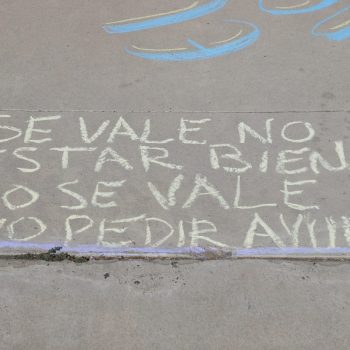 SE VALE NO
ESTAR BIEN
O SE VALE
NO PEDIR